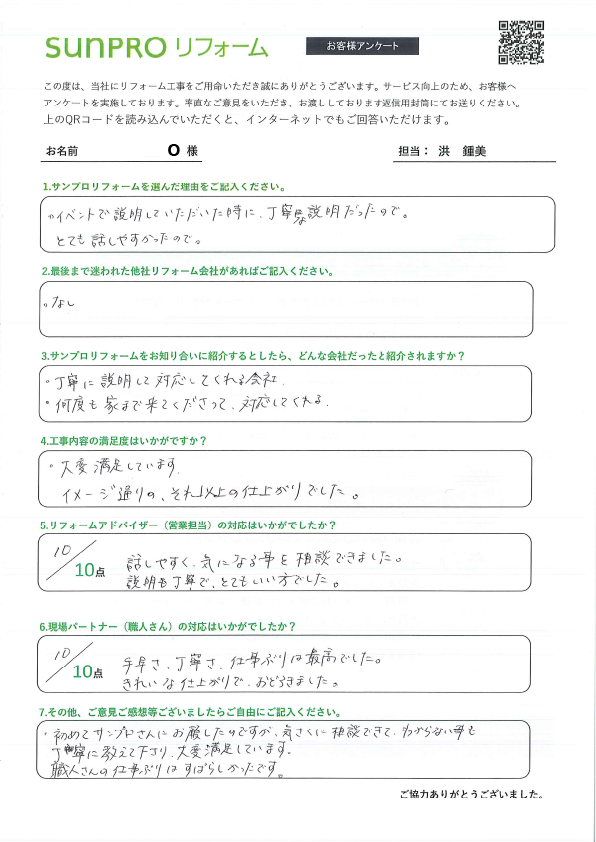 SUNPRO リフォーム
お客様アンケート
この度は、当社にリフォーム工事をご用命いただき誠にありがとうございます。サービス向上のため、お客様へ
アンケートを実施しております。率直なご意見をいただき、お渡ししております返信用封筒にてお送りください。
上のQRコードを読み込んでいただくと、インターネットでもご回答いただけます。
お名前 O 様 担当： 洪 鍾美
1.サンプロリフォームを選んだ理由をご記入ください。
。イベントで説明していただいた時に、丁寧な説明だったので。
とても話しやすかったので。
2.最後まで迷われた他社リフォーム会社があればご記入ください。
。なし
3.サンプロリフォームをお知り合いに紹介するとしたら、どんな会社だったと紹介されますか？
・丁寧に説明して対応してくれる会社.
・何度も家まで来てくださって、対応してくれる.
4.工事内容の満足度はいかがですか？
・大変満足しています.
イメージ通りの、それ以上の仕上がりでした。
5.リフォームアドバイザー（営業担当）の対応はいかがでしたか？
10/10点
話しやすく、気になる事を相談できました。
説明も丁寧で、とてもいい方でした。
6.現場パートナー（職人さん）の対応はいかがでしたか？
10/10点
手早さ、丁寧さ、仕事ぶりは最高でした。
きれいな仕上がりで、おどろきました。
7.その他、ご意見ご感想等ございましたらご自由にご記入ください。
・初めてサンプロさんにお願したのですが、気さくに相談できて、わからない事も
丁寧に教えて下さり、大変満足しています.
職人さんの仕事ぶりはすばらしかったです。
ご協力ありがとうございました。